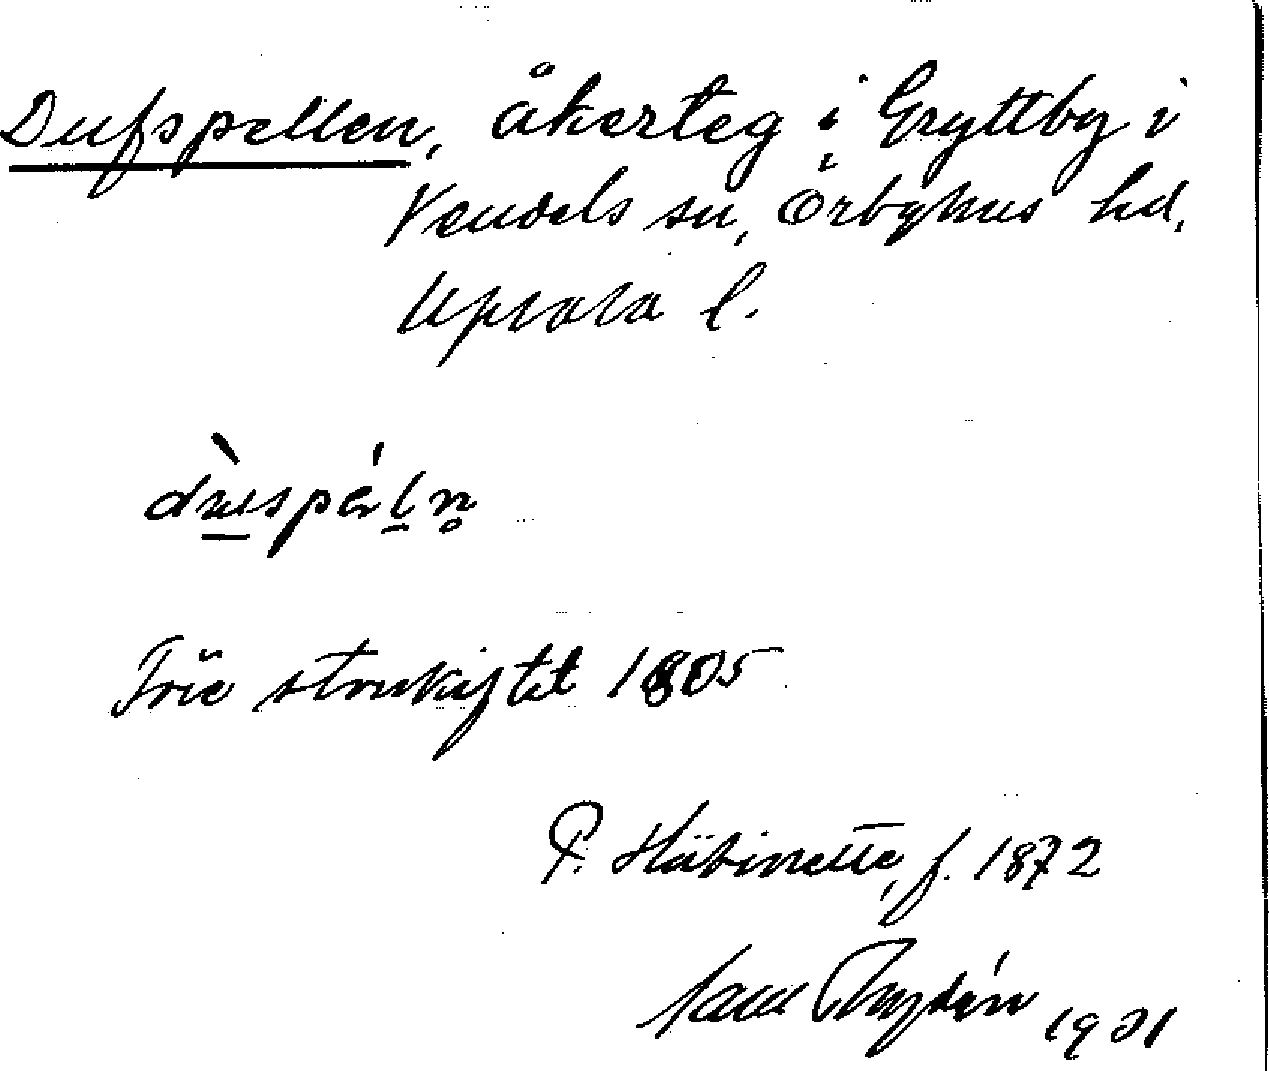 Dufspellen, åkerteg i Gryttby i
Vendels sn, Örbyhus hd,
Upsala l.
Före storskiftet 1805
P. Häbinette, f. 1872
Rydén 1931